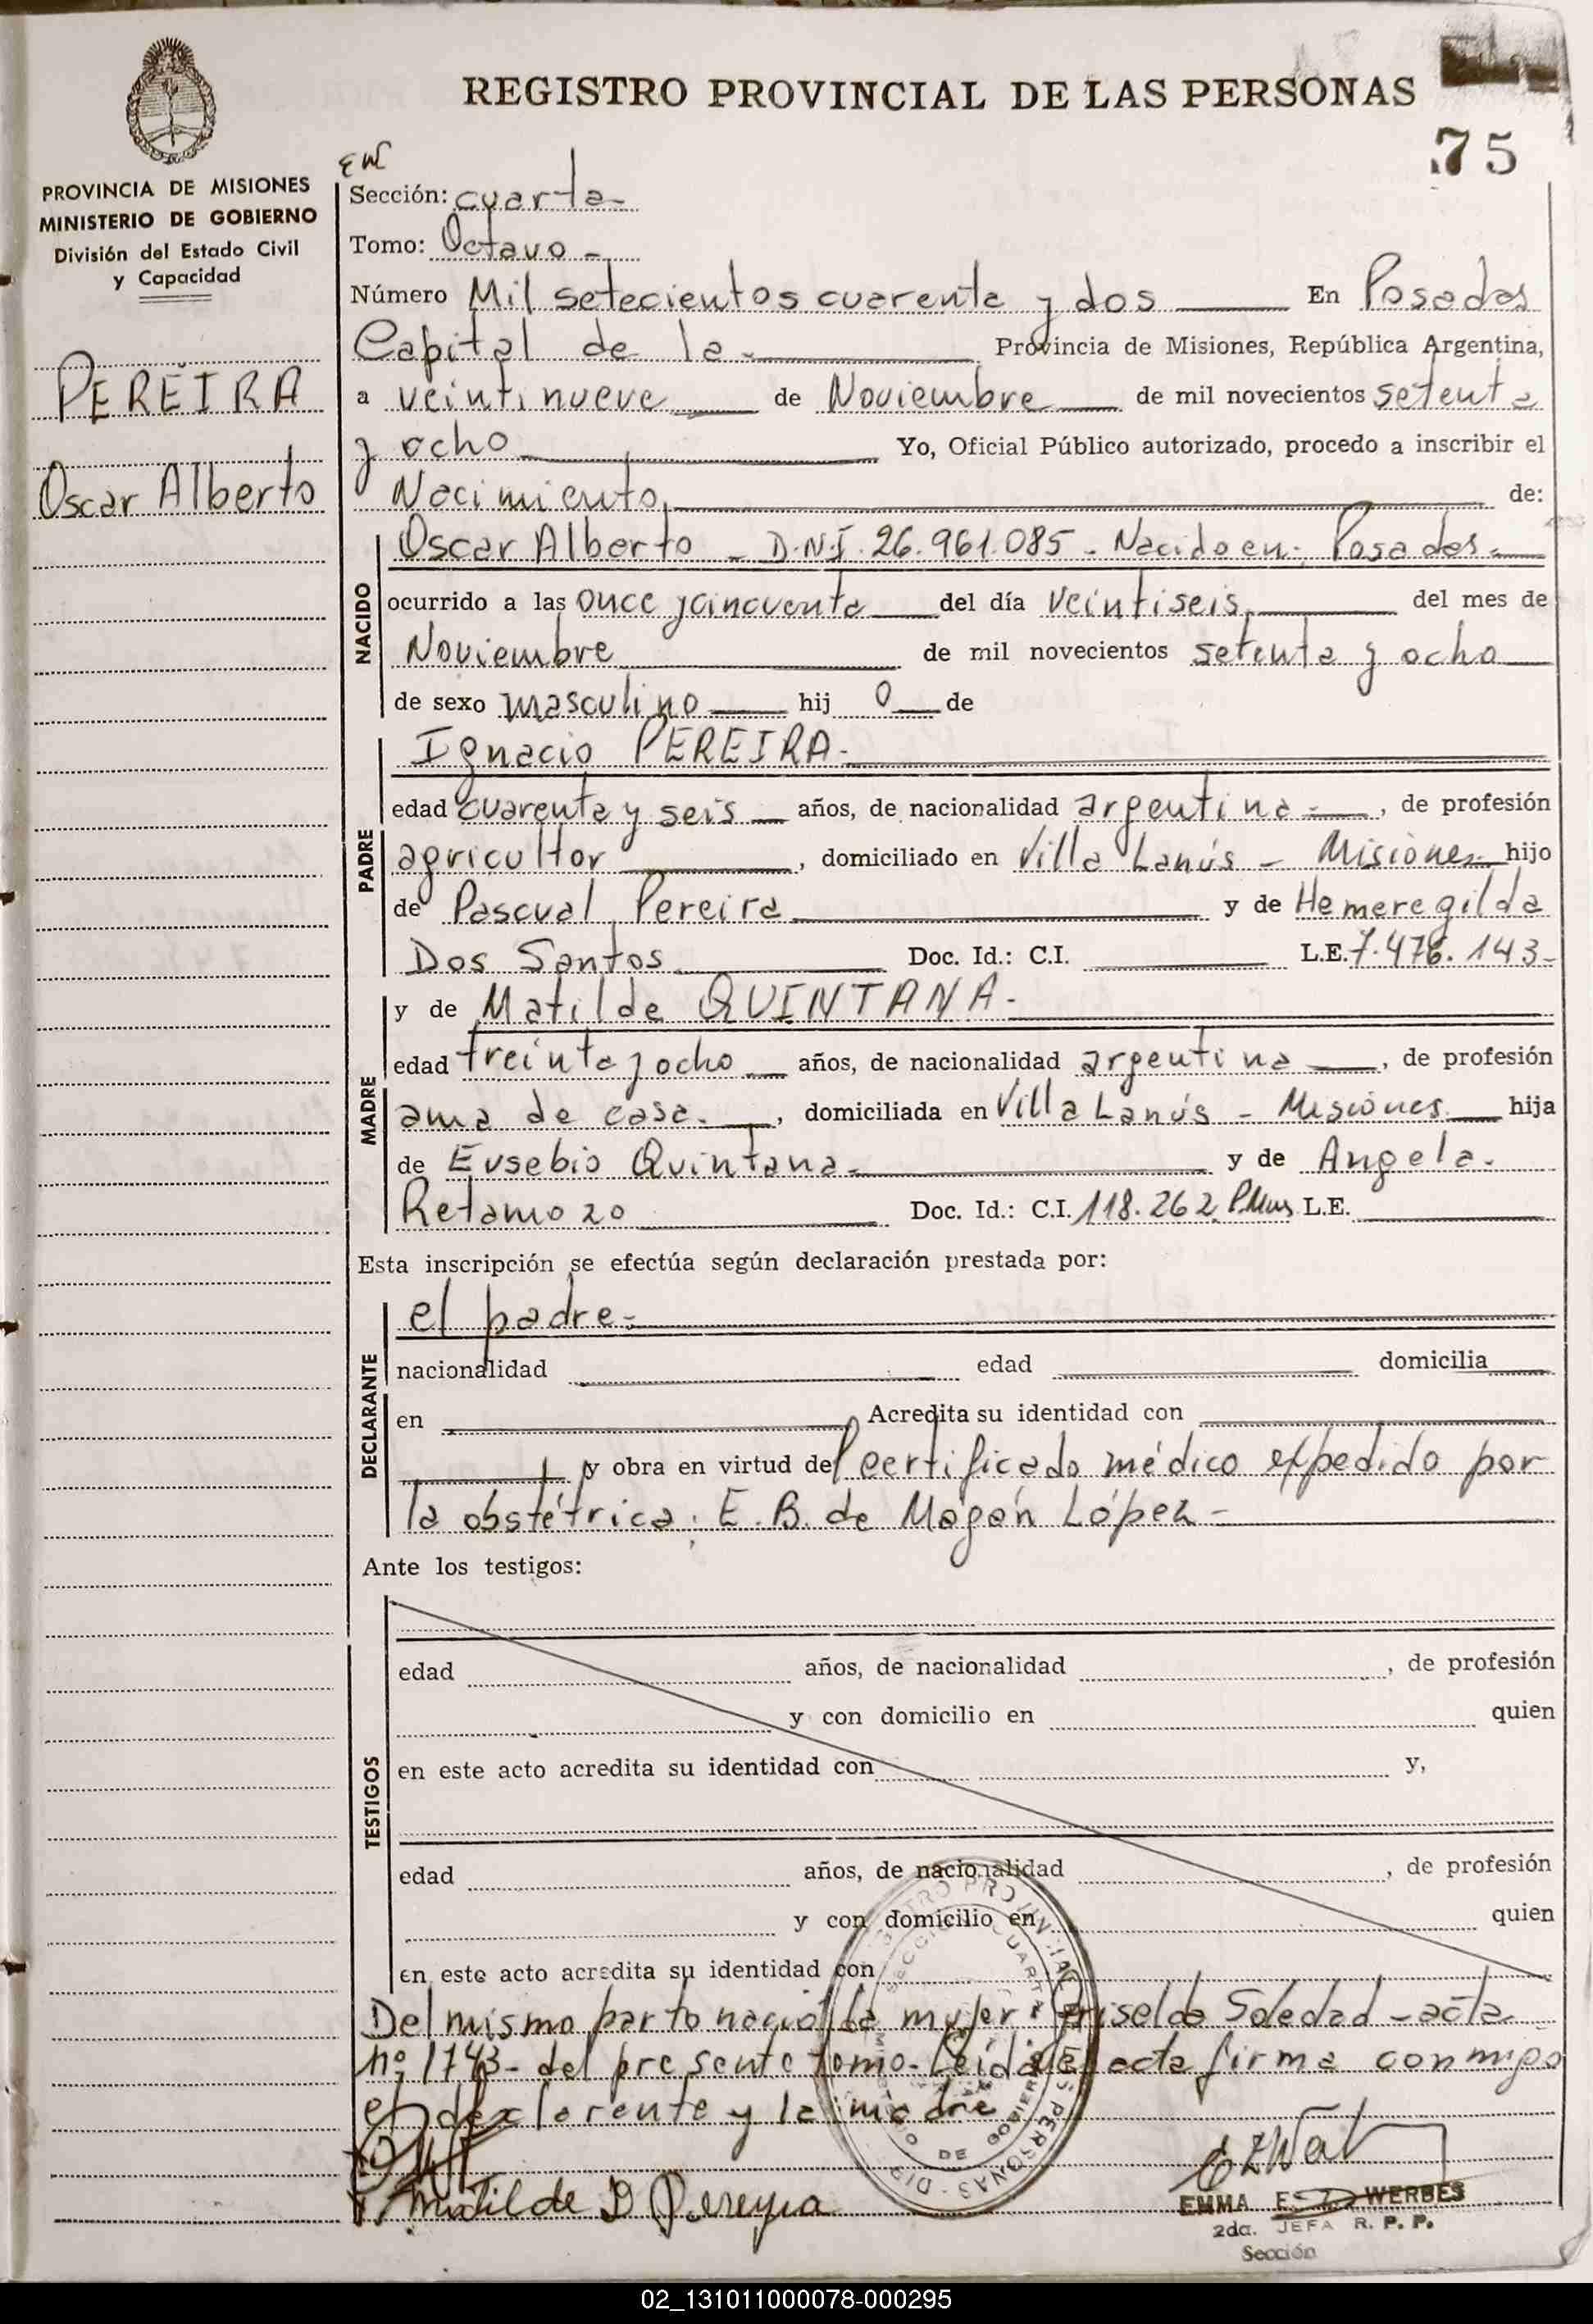 REGISTRO PROVINCIAL DE LAS PERSONAS
75
PROVINCIA DE MISIONES
MINISTERIO DE GOBIERNO
División del Estado Civil
y Capacidad
PEREIRA
Oscar Alberto
Sección: cuarta-
Tomo: Octavo-
Número Mil setecientos cuarenta y dos En Posadas
Capital de la- Provincia de Misiones, República Argentina,
a veintinueve de Noviembre de mil novecientos setenta
y ocho Yo, Oficial Público autorizado, procedo a inscribir el
Nacimiento de:
NACIDO
Oscar Alberto - D.N.I. 26.961.085 - Nacido en: Posadas-
ocurrido a las once y cincuenta del día veintiseis del mes de
Noviembre de mil novecientos setenta y ocho
de sexo masculino hij o de
PADRE
Ignacio PEREIRA-
edad cuarenta y seis años, de nacionalidad argentina-, de profesión
agricultor, domiciliado en Villa Lanús - Misiones hijo
de Pascual Pereira y de Hemeregilda
Dos Santos Doc. Id.: C.I. L.E. 7.476.143-
MADRE
y de Matilde QUINTANA-
edad treinta y ocho años, de nacionalidad argentina, de profesión
ama de casa., domiciliada en Villa Lanús - Misiones hija
de Eusebio Quintana- y de Angela-
Retamozo Doc. Id.: C.I. 118.262 P.Mnes L.E.
Esta inscripción se efectúa según declaración prestada por:
DECLARANTE
el padre-
nacionalidad edad domicilia
en Acredita su identidad con
y obra en virtud del certificado médico expedido por
la obstétrica: E. B. de Magán López-
Ante los testigos:
TESTIGOS
edad años, de nacionalidad , de profesión
y con domicilio en quien
en este acto acredita su identidad con y,
edad años, de nacionalidad , de profesión
y con domicilio en quien
en este acto acredita su identidad con
Del mismo parto nació la mujer: Griselda Soledad - acta
nº 1743- del presente tomo- Leída el acta firma conmigo
el declarente y la madre
Matilde D Pereyra
EMMA E. WERBES
2da. JEFA R. P. P.
Sección
02_131011000078-000295